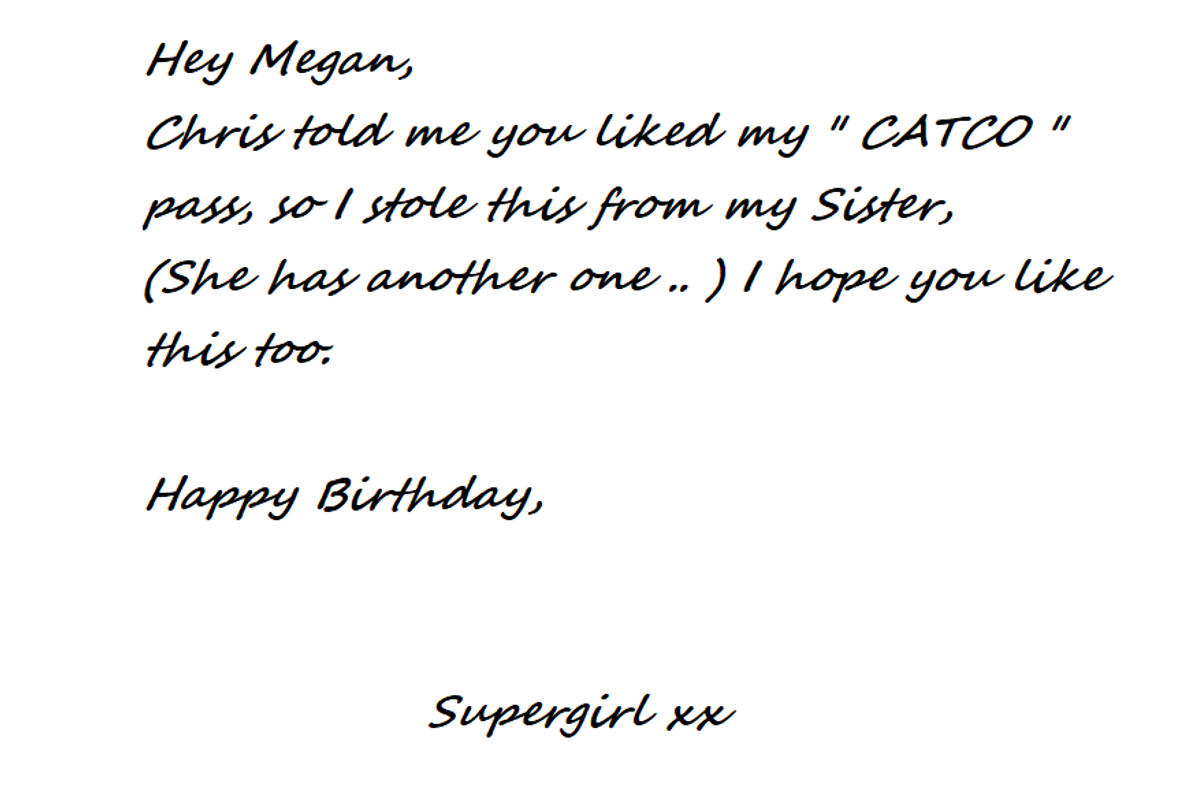 Hey Megan,
Chris told me you liked my " CATCO "
pass, so I stole this from my Sister,
(She has another one .. ) I hope you like
this too.
Happy Birthday,
Supergirl xx